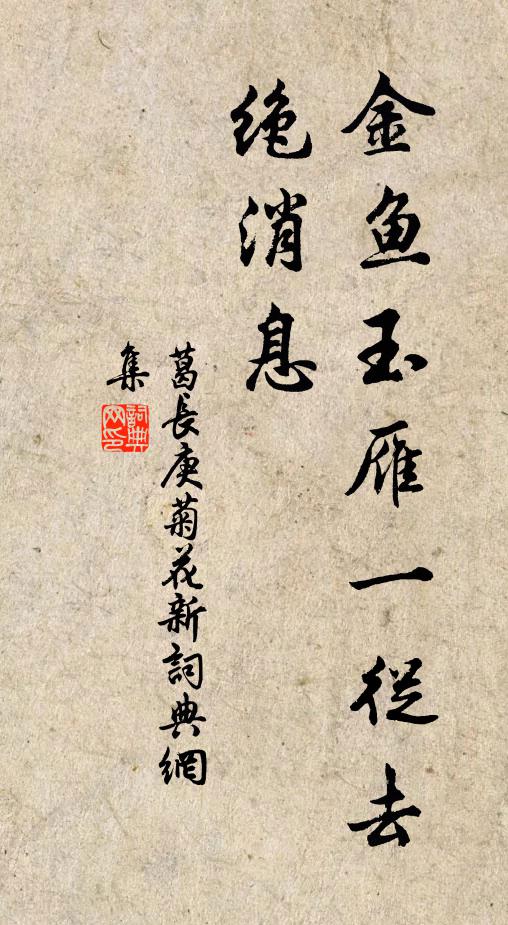 金鱼玉雁一從去
绝消息
葛長庚菊花新詞典網
集
詞典
网印